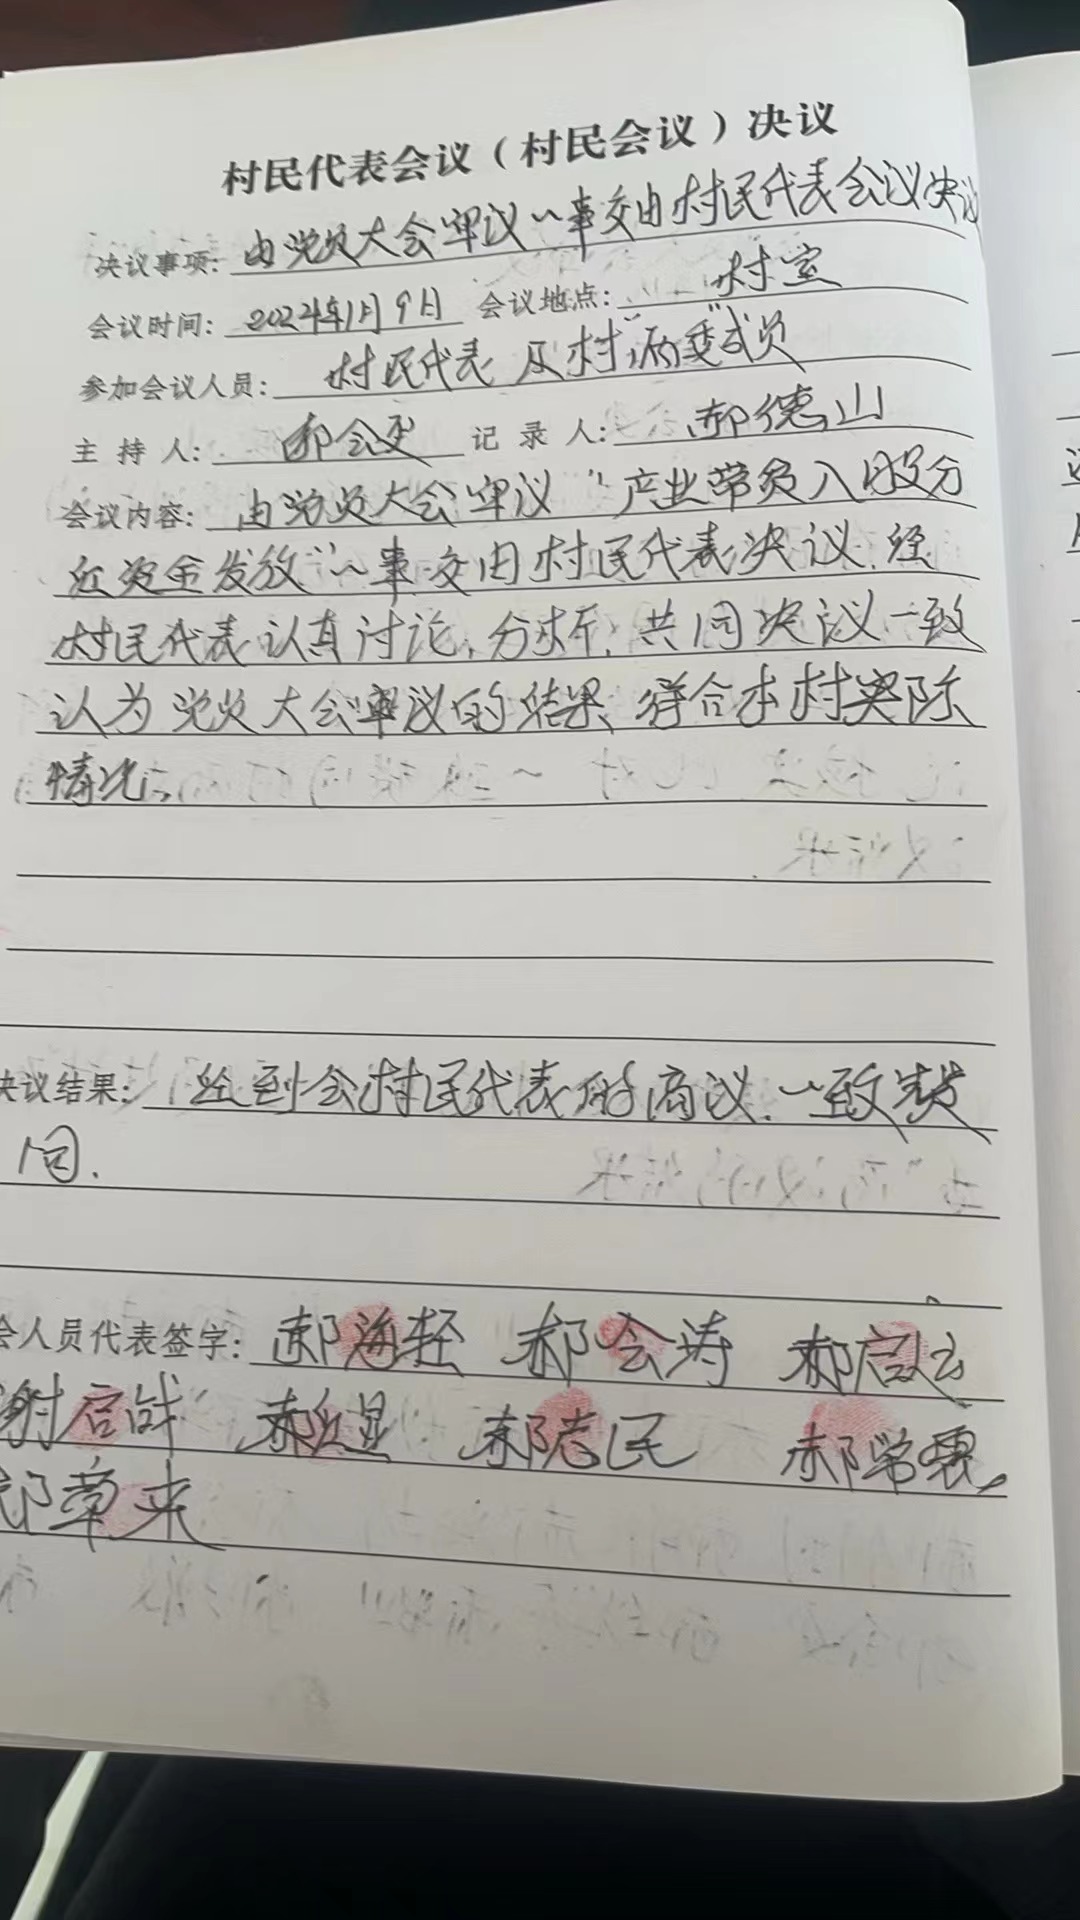 村民代表会议（村民会议）决议
决议事项：由党员大会审议一事交由村民代表会议决议
会议时间：2024年1月9日 会议地点：村室
参加会议人员：村民代表及村"两委"成员
主持人：郝会 记录人：郝德山
会议内容：由党员大会审议"产业带贫入股分
红资金发放"一事交由村民代表决议，经
村民代表认真讨论，分析，共同决议一致
认为党员大会审议的结果，符合本村实际
情况。
决议结果：经到会村民代表的商议，一致赞
同.
会人员代表签字：郝海 郝会涛 郝启
谢启 郝红显 郝志民 郝常
郝章来